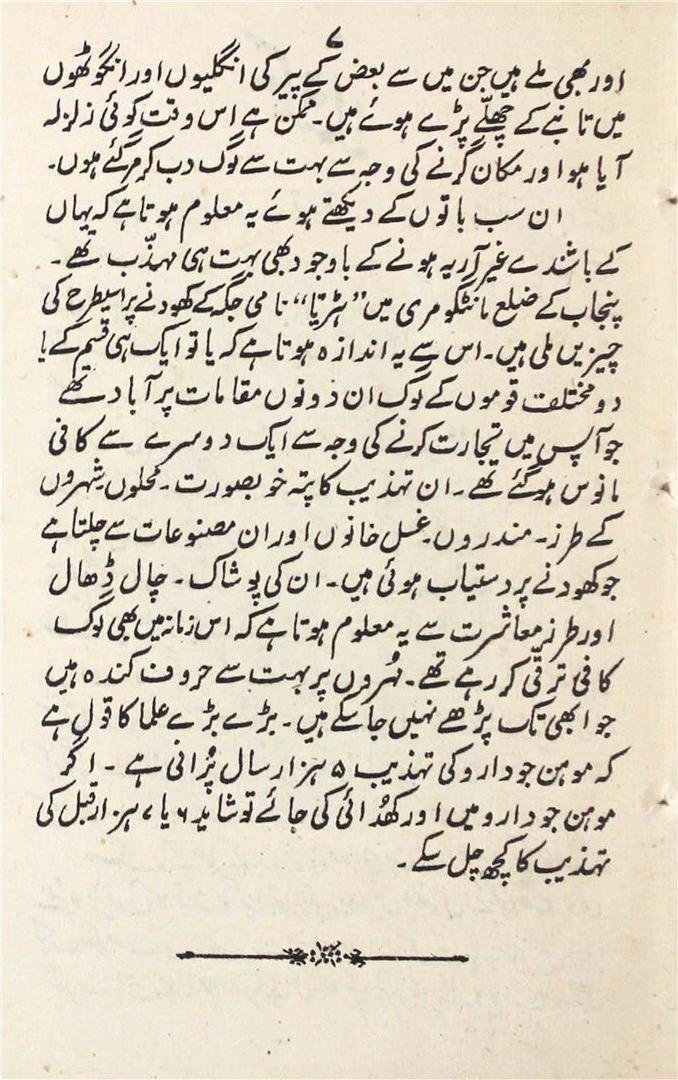 ۷
اور بھی ملے ہیں جن میں سے بعض کے پیر کی انگلیوں اور انگوٹھوں
میں تانبے کے چھلّے پڑے ہوئے ہیں۔ ممکن ہے اس وقت کوئی زلزلہ
آیا ہو اور مکان گرنے کی وجہ سے بہت سے لوگ دب کر مر گئے ہوں۔
ان سب باتوں کے دیکھتے ہوئے یہ معلوم ہوتا ہے کہ یہاں
کے باشندے غیر آریہ ہونے کے باوجود بھی بہت ہی مہذّب تھے۔
پنجاب کے ضلع مانٹگومری میں "ہڑپا" نامی جگہ کے کھودنے پر اسیطرح کی
چیزیں ملی ہیں۔ اس سے یہ اندازہ ہوتا ہے کہ یا تو ایک ہی قسم کے یا
دو مختلف قوموں کے لوگ ان دونوں مقامات پر آباد تھے
جو آپس میں تجارت کرنے کی وجہ سے ایک دوسرے سے کافی
مانوس ہوگئے تھے۔ ان تہذیب کا پتہ خوبصورت۔ محلوں۔ شہروں
کے طرز۔ مندروں۔ غسل خانوں اور ان مصنوعات سے چلتا ہے
جو کھودنے پر دستیاب ہوئی ہیں۔ ان کی پوشاک۔ چال ڈھال
اور طرزِ معاشرت سے یہ معلوم ہوتا ہے کہ اس زمانہ میں بھی لوگ
کافی ترقی کر رہے تھے۔ مُہروں پر بہت سے حروف کندہ ہیں
جو ابھی تک پڑھے نہیں جاسکے ہیں۔ بڑے بڑے علما کا قول ہے
کہ موہن جودارو کی تہذیب ۵ ہزار سال پُرانی ہے۔ اگر
موہن جودارو میں اور کھُدائی کی جائے تو شاید ۶ یا ۷ ہزار قبل کی
تہذیب کا کچھ چل سکے۔